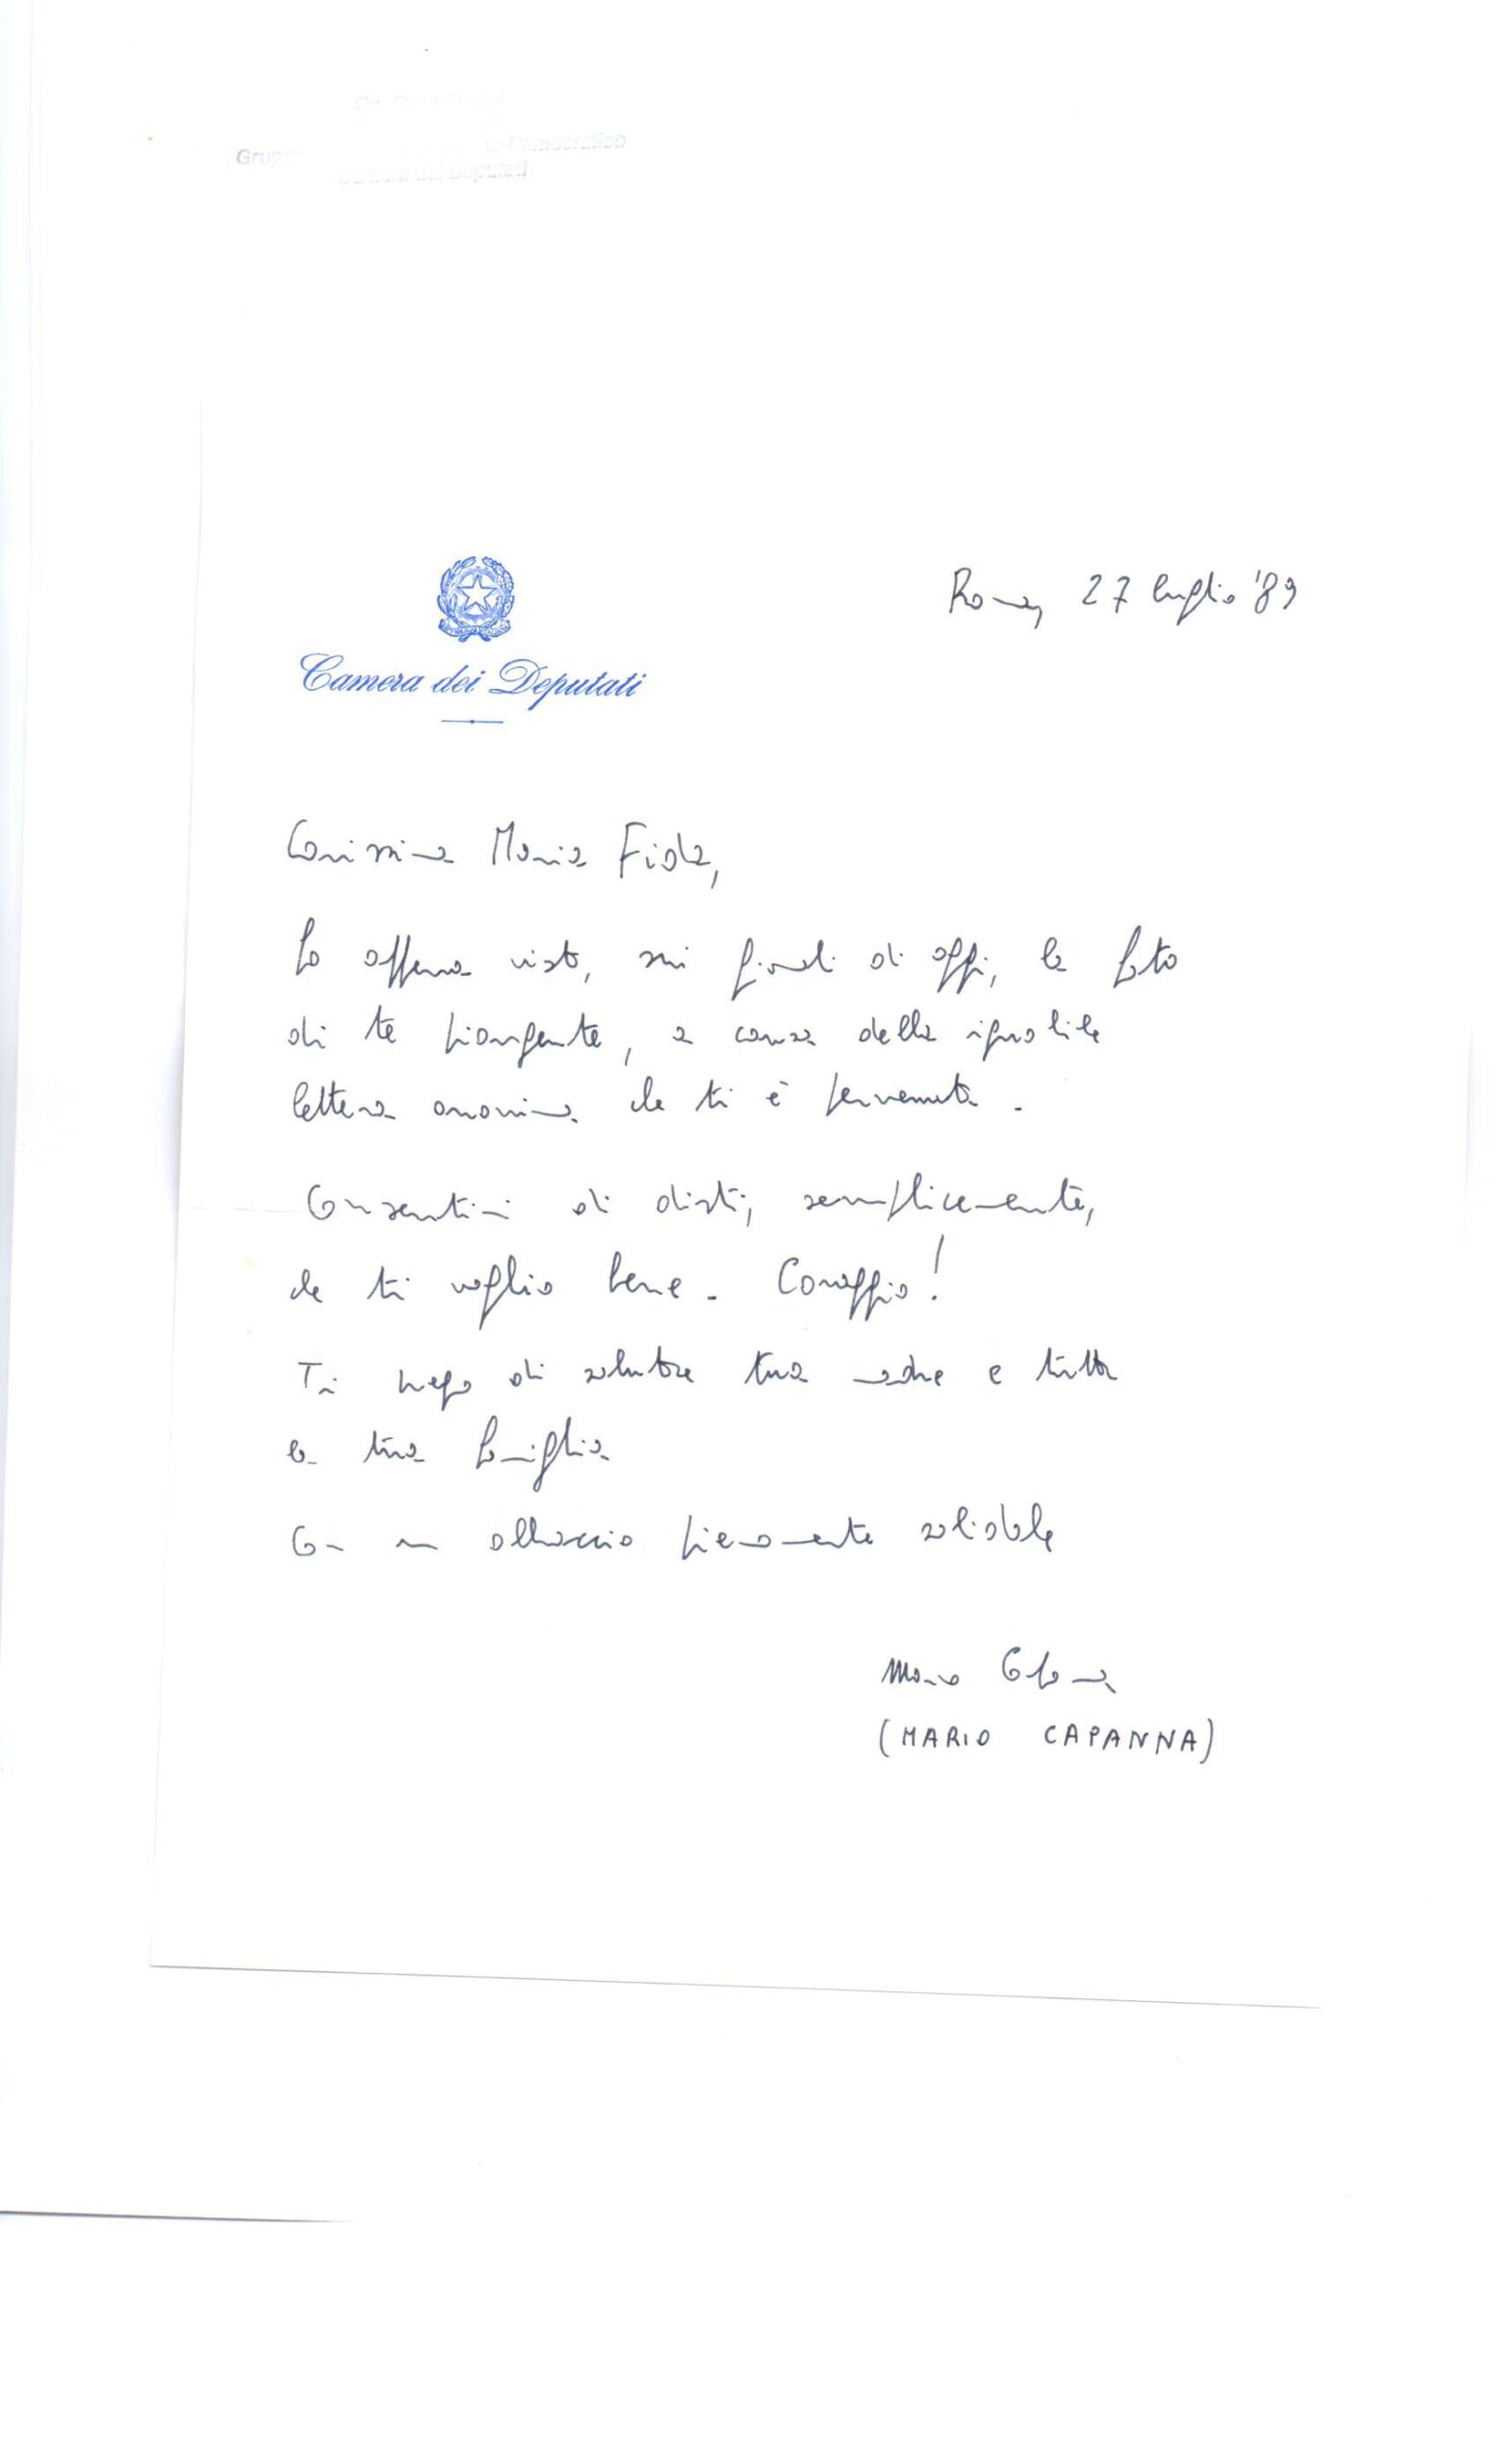 Gruppo Democratico
Camera dei Deputati
Roma, 27 luglio '89
REPVBBLICA ITALIANA
Camera dei Deputati
Carissima Maria Fida,
ho appena visto, sui giornali di oggi, la foto
di te piangente, a causa della ignobile
lettera anonima che ti è pervenuta.
Consentimi di dirti, semplicemente,
che ti voglio bene. Coraggio!
Ti prego di salutare tua madre e tutta
la tua famiglia
Con un abbraccio pienamente solidale
Mario Capanna
(MARIO CAPANNA)